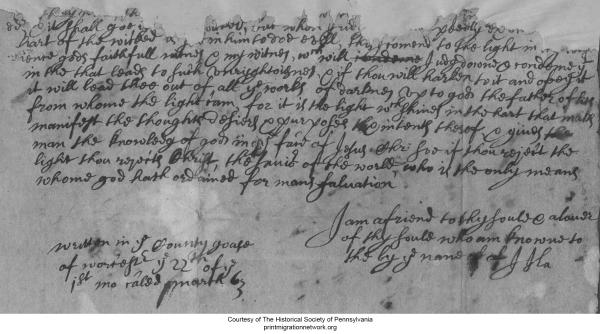 it shall goe whom
hart of the wicked in him to doe evill, this I comend to the light in
sience gods faithfull witnes & my witnes, wch will condeme Judg downe & condeme yt
in the that leads to such unrighteousnes, & if thou will harken to it and obey it
it will lead thee out of all ye works of darknes up to god the father of lights
from whome the light cam, for it is the light wch shines in the hart that maks
manifest the thoughts desiers & purposes the intents thereof & gives the
man the knowledg of god in ye face of Jesus Chr: soe if thou reject the
light thou rejects Christ, the saviour of the world, who is the only means
whome god hath ordained for mans salvation
I am a friend to thy soule & a lover
of thy soule who am knowne to
the by ye name of
written in ye County goale
of worcestr ye 22th of ye
1st mo: caled march 63
Courtesy of The Historical Society of Pennsylvania
printmigrationnetwork.org